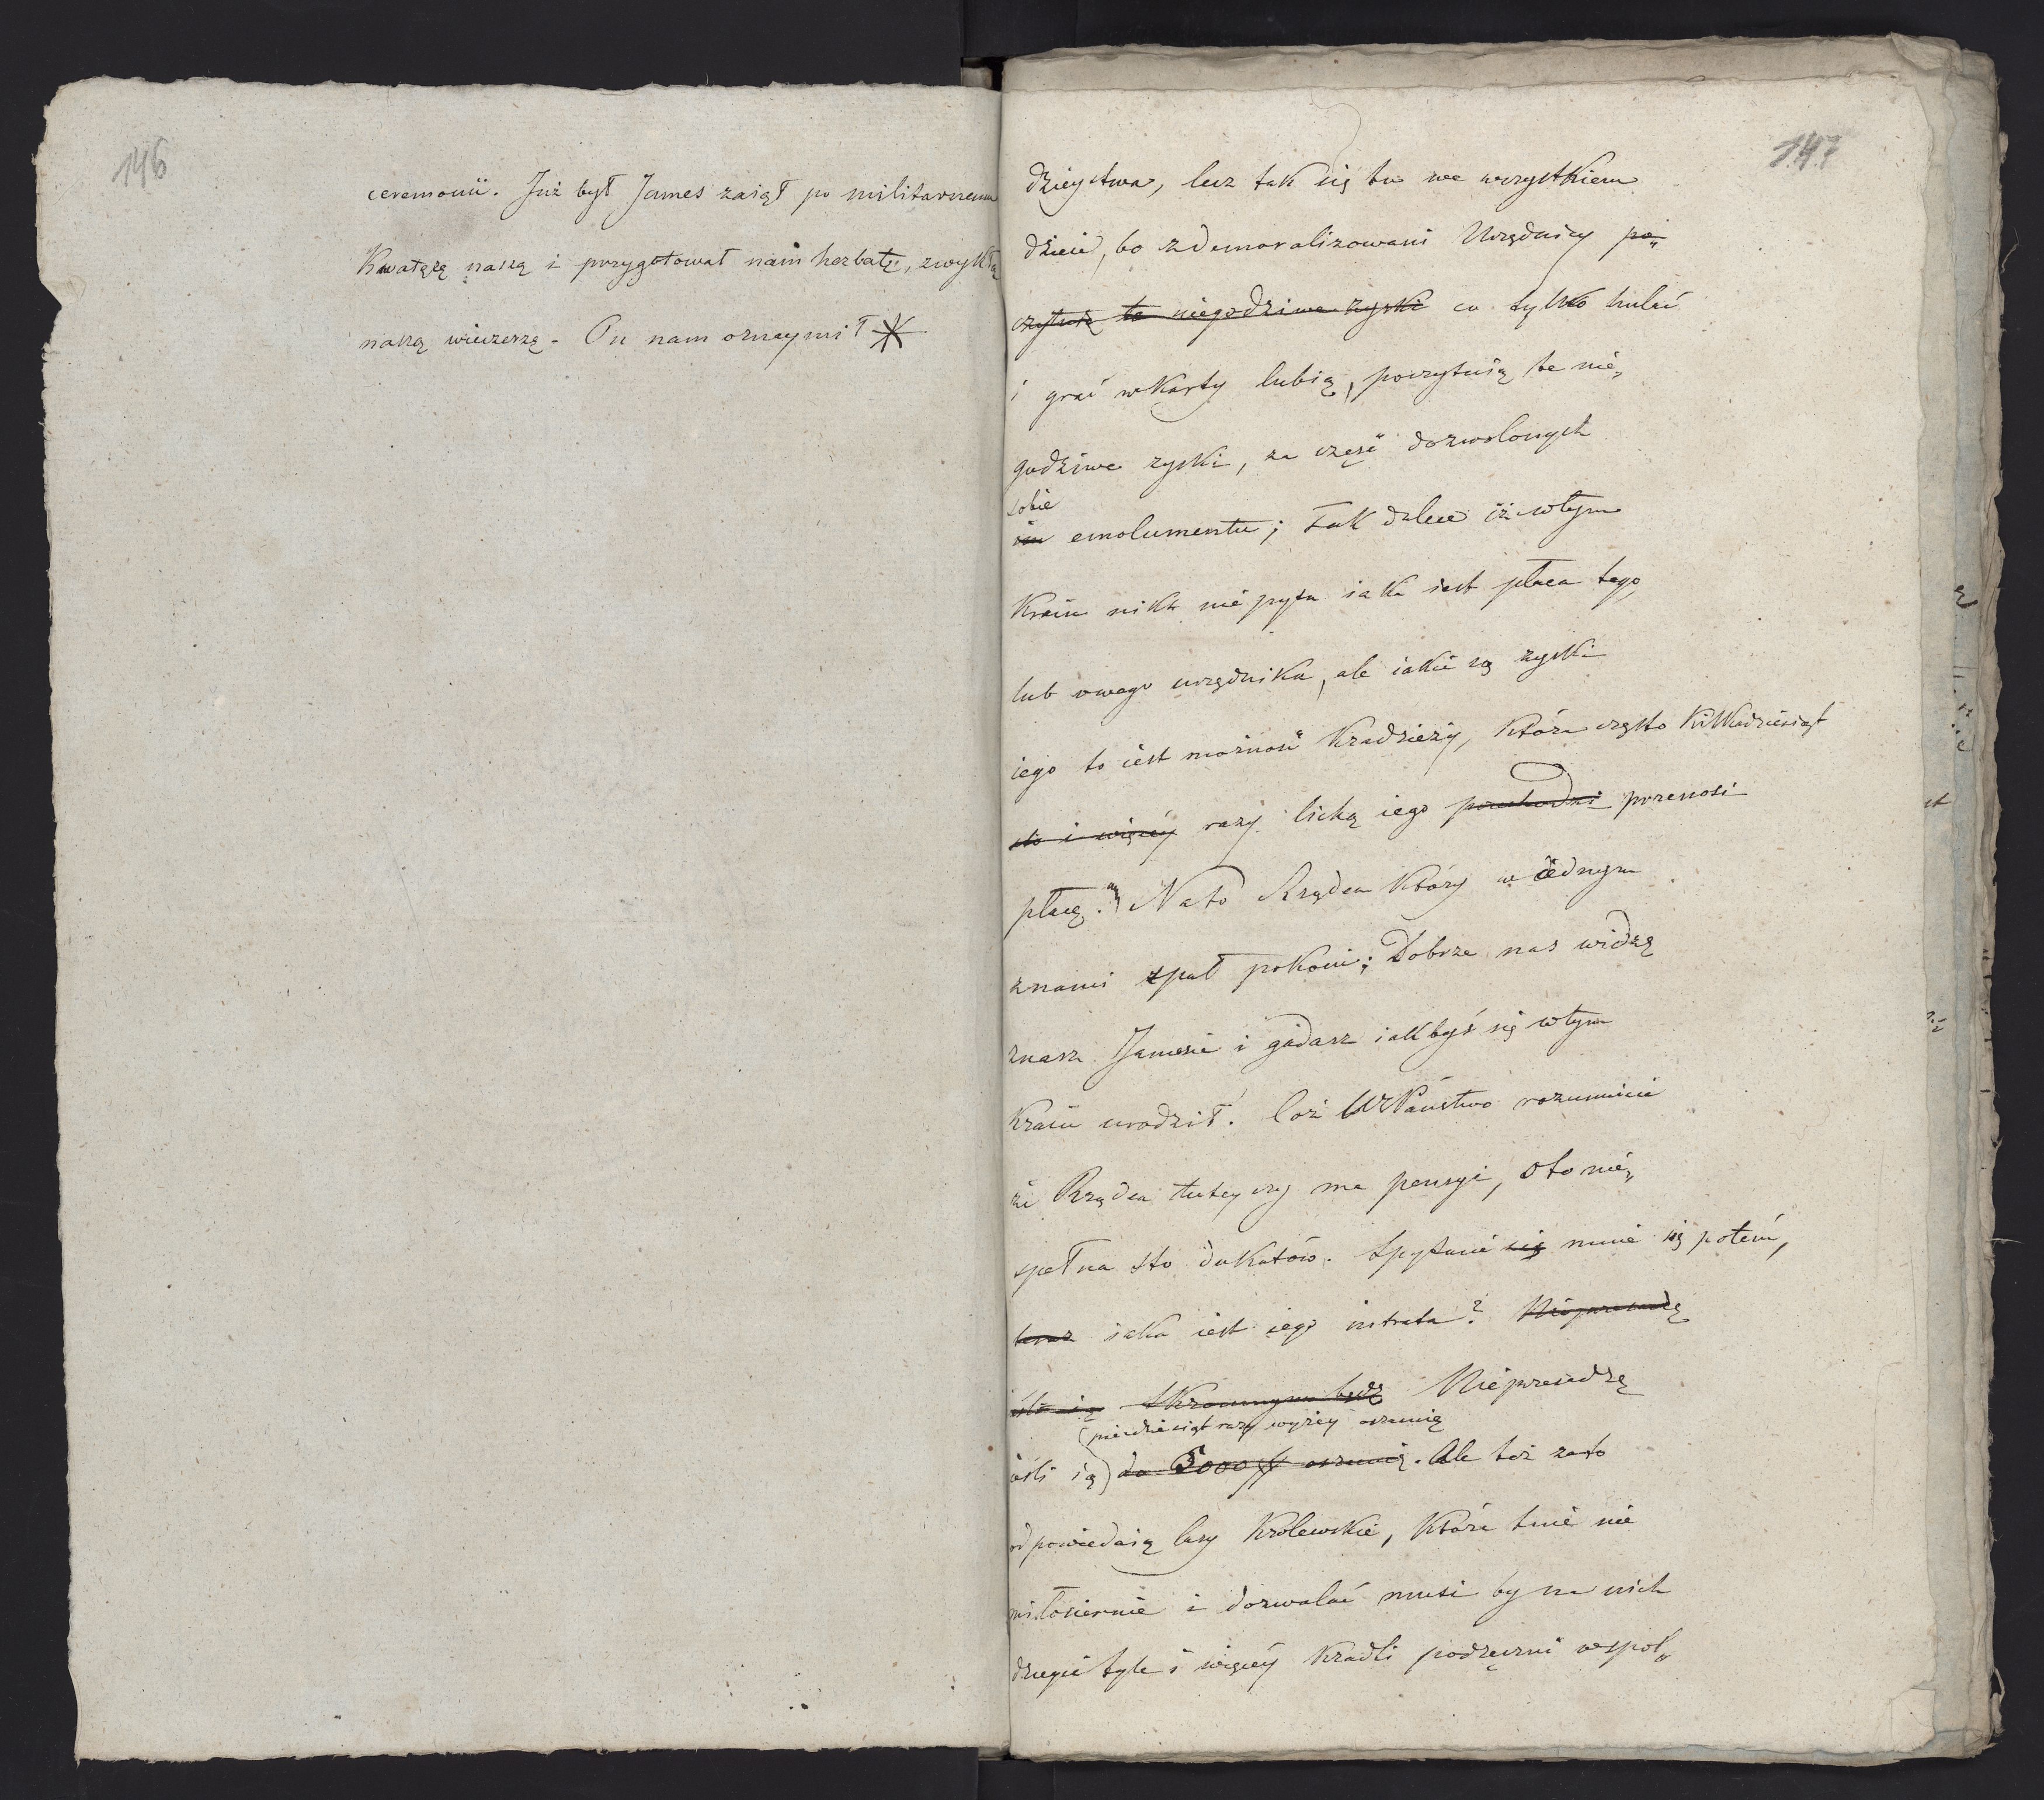 146
ceremonii. Już był James zaiął po militarnemu
Kwaterę naszą i przygotował nam herbatę, zwykłą
naszą wieczerzę. On nam oznaymił *
147
dzieystwa, lecz tak się tu we wszystkiem
dzieie, bo zdemoralizowani Urzędnicy po„
czytuią te niegodziwe zyski co tylko hulać
i grać w Karty lubią, poczytuią te nie„
godziwe zyski, za część dozwolonych
sobie
im emolumentu; tak dalece iż w tym
Kraiu nikt nie pyta iaka iest płaca tego,
lub owego urzędnika, ale iakie są zyski
iego to iest możność Kradzieży, która często Kilkadziesiąt
sto i więcéy razy lichą iego przechodzi przenosi
płacę. Na to Rządca Który w iednym
z nami spał pokoiu; Dobrze nas widzę
znasz Jamesie i gadasz iakbyś się w tym
Kraiu urodził. Coż WPaństwo rozumiecie
że Rządca tuteyszy ma pensyi, oto nie„
spełna sto dukatów. Spytacie się mnie się potém,
teraz iaka iest iego intrata? Nieprzesadzę
iśli ią Skromnym będę Nieprzesadzę
(pięćdziesiąt razy wyżey oznaczę
ieśli ią) do 5000 # oznaczę. Ale też za to
odpowiedaią lasy Królewskie, Które tnie nie
miłosiernie i dozwalać musi by na nich
drugie tyle i więcéy Kradli podręczni wspoł„